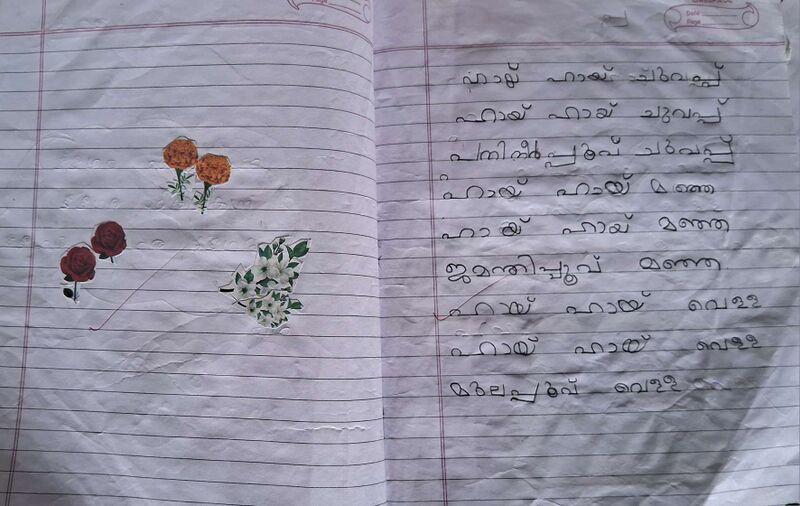 Page
Date
Page
ഹായ് ഹായ് ചുവപ്പ്
ഹായ് ഹായ് ചുവപ്പ്
പനിനീർപ്പൂവ് ചുവപ്പ്
ഹായ് ഹായ് മഞ്ഞ
ഹായ് ഹായ് മഞ്ഞ
ജമന്തിപ്പൂവ് മഞ്ഞ
ഹായ് ഹായ് വെള്ള
ഹായ് ഹായ് വെള്ള
മുല്ലപ്പൂവ് വെള്ള